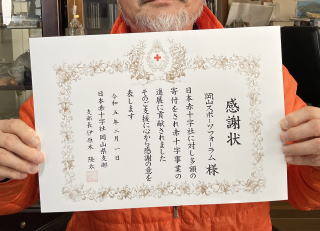 感謝状
岡山スポーツフォーラム 様
日本赤十字社に対し多額の
寄付をされ赤十字事業の
進展に貢献されました
そのご支援に心から感謝の意を
表します
令和五年二月一日
日本赤十字社 岡山県支部
支部長 伊原木 隆太